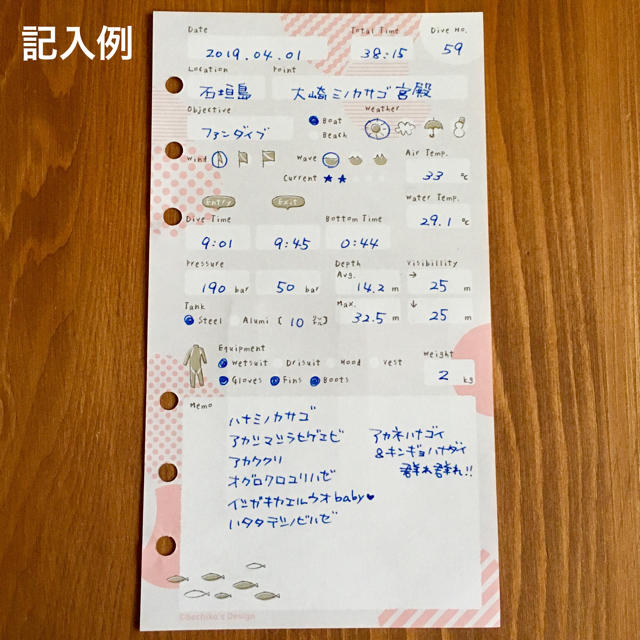 記入例
Date Total Time Dive No.
2019.04.01 38:15 59
Location Point
石垣島 大崎ミノカサゴ宮殿
Objective Weather
ファンダイブ Boat
Beach
Wind Wave Air Temp.
Current ★★ 33 ℃
Entry Exit Water Temp.
Dive Time Bottom Time 29.1 ℃
9:01 9:45 0:44
Pressure Depth Visibility
Avg. →
190 bar 50 bar 14.2 m 25 m
Tank Max. ↓
Steel Alumi [10 リットル] 32.5 m 25 m
Equipment Weight
Wetsuit Drisuit Hood Vest
Gloves Fins Boots 2 kg
Memo
ハナミノカサゴ
アカシマシラヒゲエビ
アカククリ
オグロクロユリハゼ
イシガキカエルウオbaby♥
ハタタテシノビハゼ
アカネハナゴイ
&キンギョハナダイ
群れ群れ!!
©Sachiko's Design